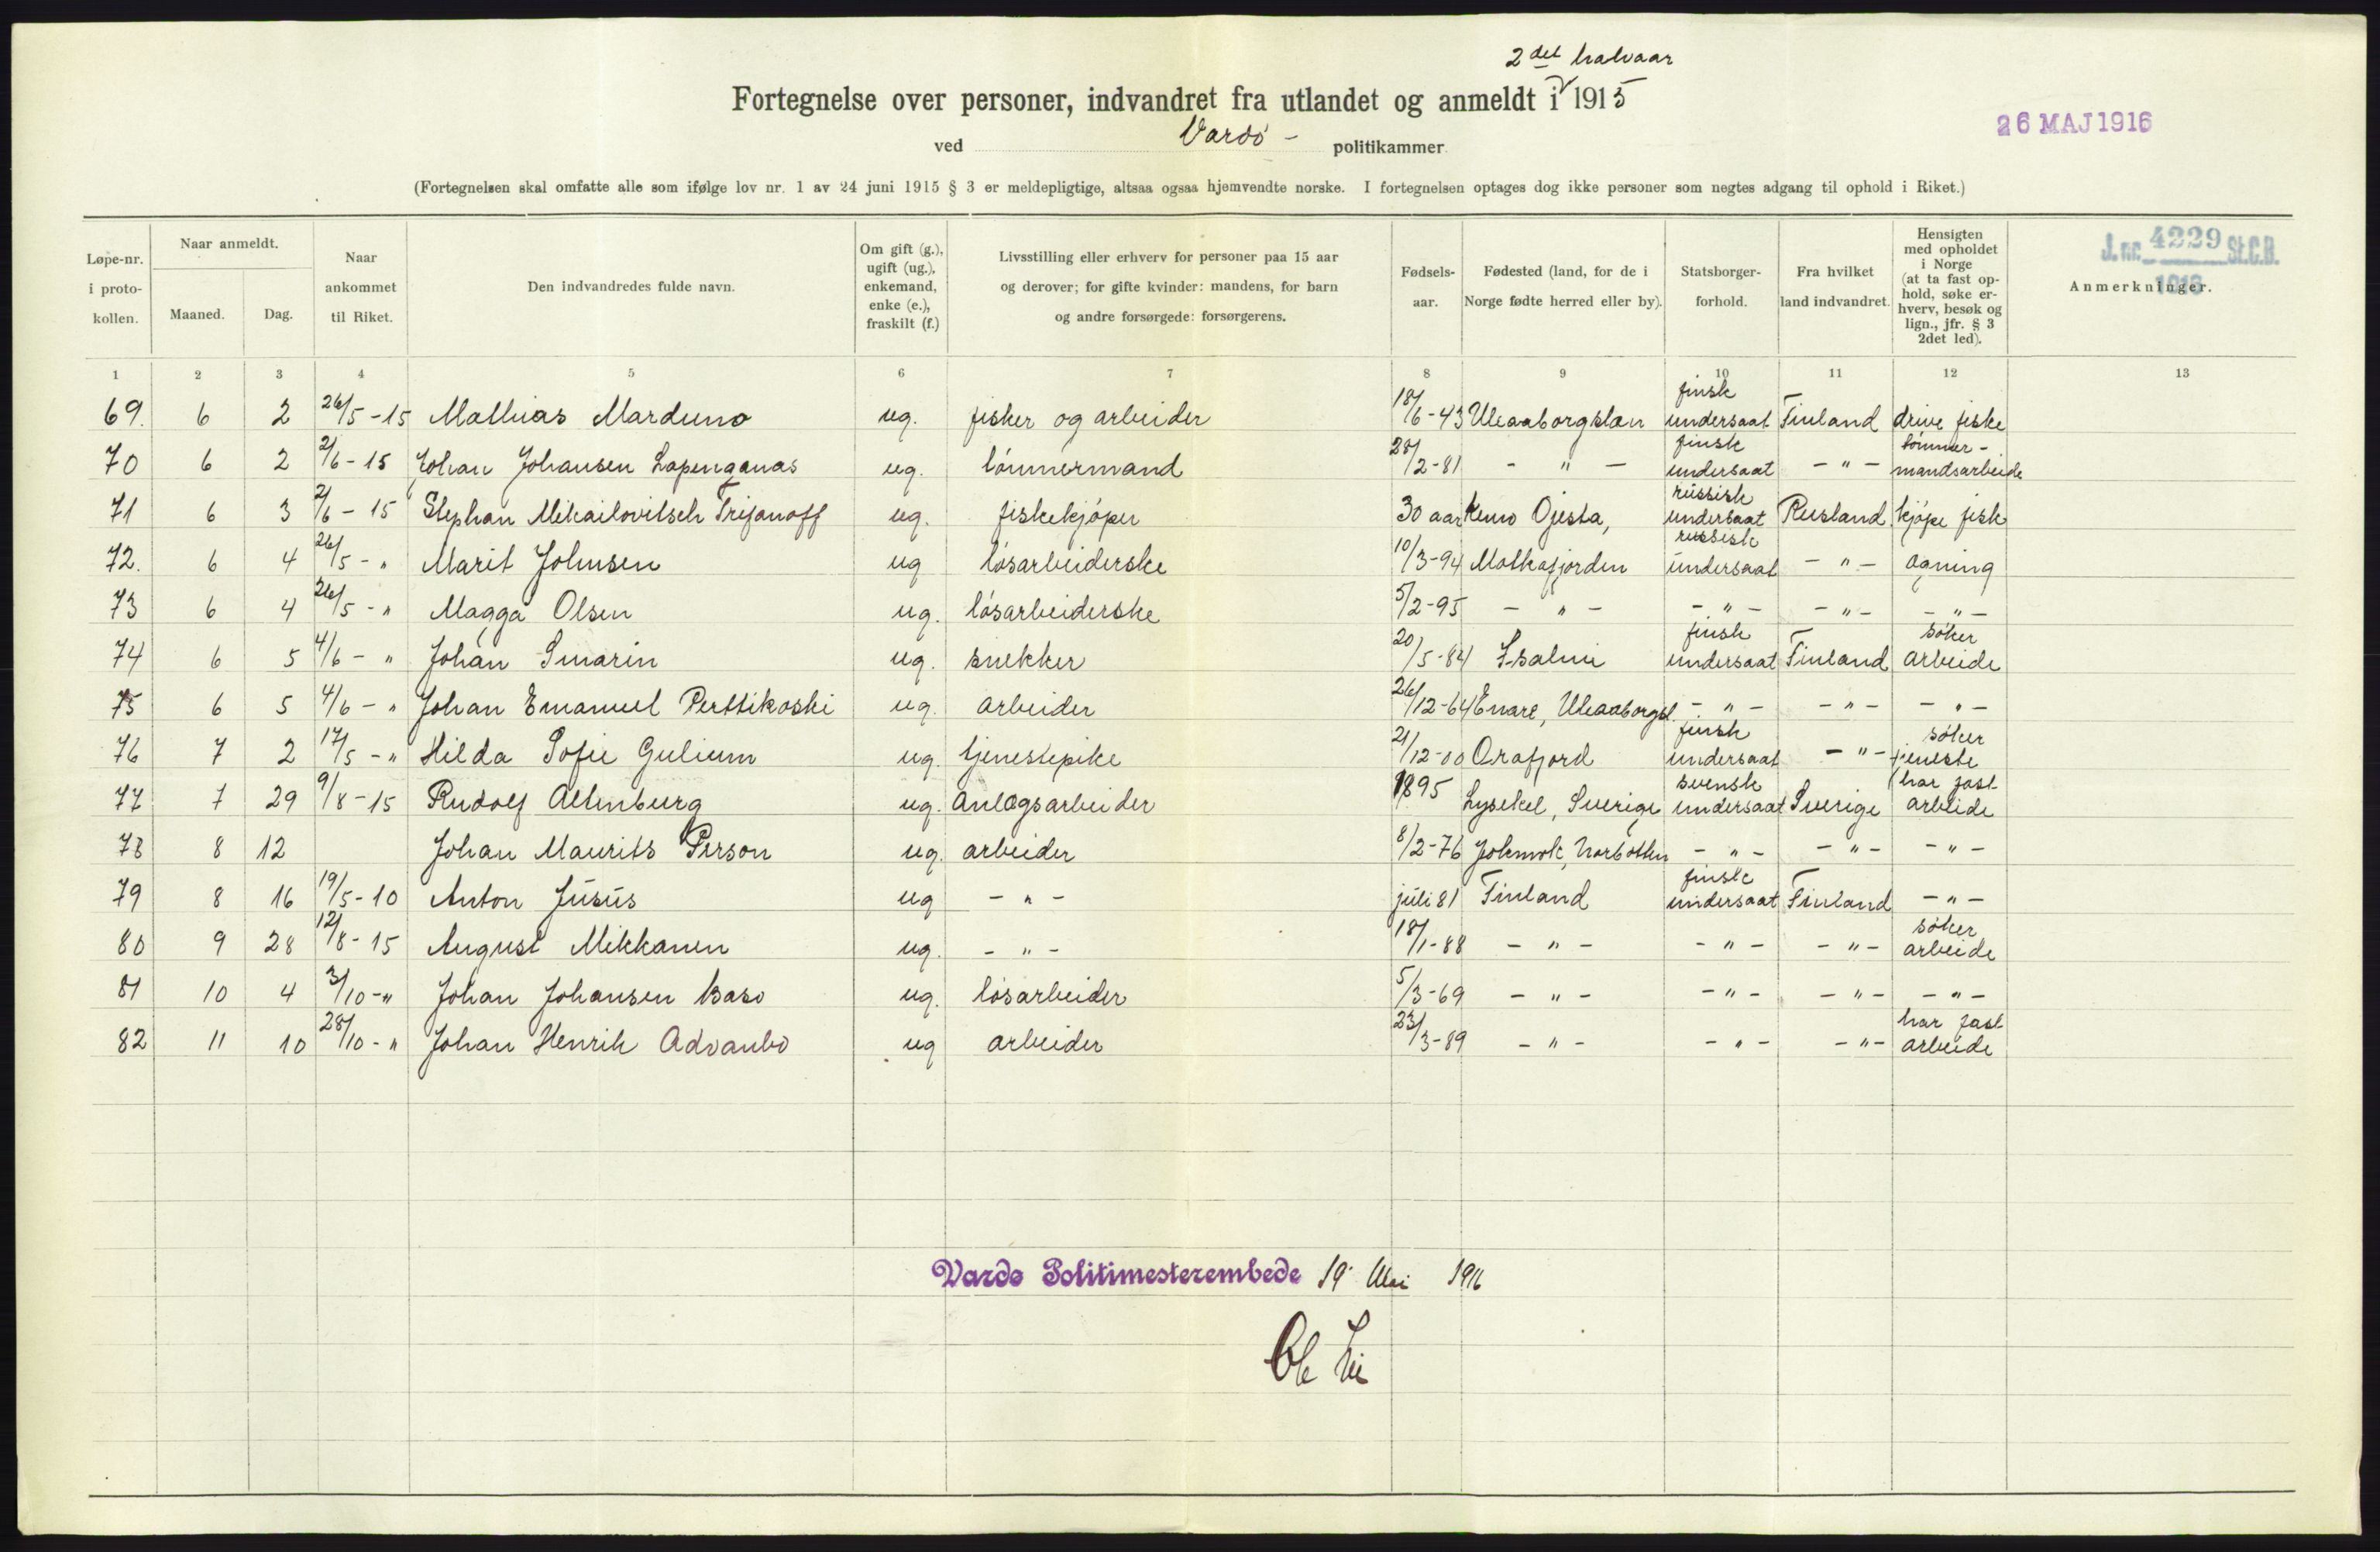 2det halvaar
Fortegnelse over personer, indvandret fra utlandet og anmeldt i 1915
26 MAJ 1916
ved Vardö - politikammer
(Fortegnelsen skal omfatte alle som ifølge lov nr. 1 av 24 juni 1915 § 3 er meldepligtige, altsaa ogsaa hjemvendte norske. I fortegnelsen optages dog ikke personer som negtes adgang til ophold i Riket.)
Løpe-nr. i proto-kollen.
Naar anmeldt.
Maaned. Dag.
Naar ankommet til Riket.
Den indvandredes fulde navn.
Om gift (g.), ugift (ug.), enkemand, enke (e.), fraskilt (f.)
Livsstilling eller erhverv for personer paa 15 aar og derover; for gifte kvinder: mandens, for barn og andre forsørgede: forsørgerens.
Fødsels-aar.
Fødested (land, for de i Norge fødte herred eller by).
Statsborger-forhold.
Fra hvilket land indvandret.
Hensigten med opholdet i Norge (at ta fast op-hold, søke er-hverv, besøk og lign., jfr. § 3 2det led).
J. nr. 4229 St.C.B.
1916
Anmerkninger.
1 2 3 4 5 6 7 8 9 10 11 12 13
69. 6 2 26/5-15 Mathias Marduno ug. fisker og arbeider 18/6-43 Uleaaborgslän finsk undersaat Finland drive fiske
70 6 2 2/6-15 Johan Johansen Lapenganas ug. tömmermand 28/2-81 - " - finsk undersaat - " - tömmer-mandsarbeide
71 6 3 2/6-15 Stephan Mikailovitsch Trifanoff ug. fiskekjöper 30 aar Kemo Ojesta, russisk undersaat Rusland kjöpe fisk
72. 6 4 26/5-" Marit Johnsen ug lösarbeiderske 10/3-94 Motkafjorden russisk undersaat - " - agning
73 6 4 26/5-" Magga Olsen ug. lösarbeiderske 5/2-95 - " - - " - - " - - " -
74 6 5 4/6-" Johan Smarin ug. snekker 20/5-84 Isalmi finsk undersaat Finland söker arbeide
75 6 5 4/6-" Johan Emanuel Perttikoski ug. arbeider 26/12-64 Enare, Uleaaborgsl. - " - - " - - " -
76 7 2 17/5-" Hilda Sofie Gulium ug. tjenestepike 21/12-00 Orafjord finsk undersaat - " - söker tjeneste
77 7 29 9/8-15 Rudolf Altenburg ug. Anlægsarbeider 1895 Lysekel, Sverige svensk undersaat Sverige har fast arbeide
78 8 12 Johan Maurits Person ug. arbeider 8/2-76 Jokmok, Norbotten - " - - " - - " -
79 8 16 19/5-10 Anton Jusus ug - " - juli 81 Finland finsk undersaat Finland - " -
80 9 28 12/8-15 August Mikkanen ug. - " - 18/1-88 - " - - " - - " - söker arbeide
81 10 4 3/10-" Johan Johansen Baso ug. lösarbeider 5/3-69 - " - - " - - " - - " -
82 11 10 28/10-" Johan Henrik Advanbo ug arbeider 23/3-89 - " - - " - - " - har fast arbeide
Vardø Politimesterembede 19. Mai 1916